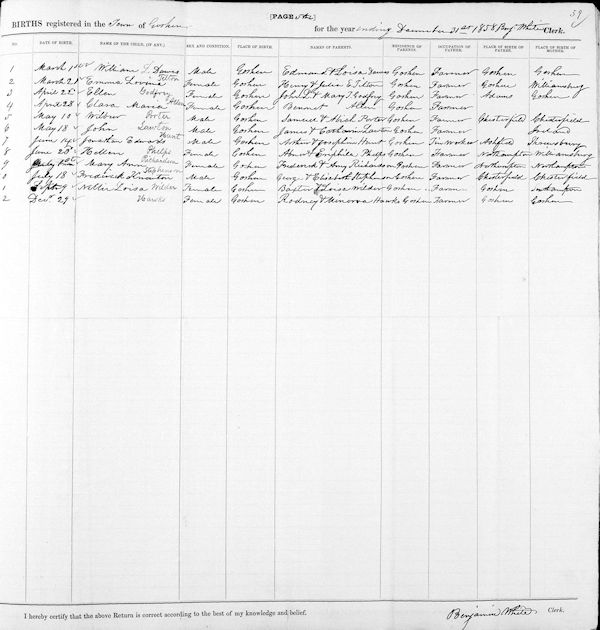 [PAGE 582]
59
BIRTHS registered in the Town of Goshen for the year ending December 31st 1858 Benj. White Clerk.
NO. DATE OF BIRTH. NAME OF THE CHILD, (IF ANY.) SEX AND CONDITION. PLACE OF BIRTH. NAMES OF PARENTS. RESIDENCE OF PARENTS. OCCUPATION OF FATHER. PLACE OF BIRTH OF FATHER. PLACE OF BIRTH OF MOTHER.
1 March William Dawes Male Goshen Edmund & Loisa Dawes Goshen Farmer Goshen Goshen
2 March 21 Emma Lovina Tilton Female Goshen Henry & E Tilton Goshen Farmer Goshen Williamsburg
3 April 22 Ellen Godfrey Female Goshen John & Mary Godfrey Goshen Farmer Adams Goshen
4 April 28 Clara Maria Allen Female Goshen Bennet Allen Goshen Farmer
5 May 10 Wilbur Porter Male Goshen Samuel & Porter Goshen Farmer Chesterfield Chesterfield
6 May 18 John Lawton Male Goshen James & Catharine Lawton Goshen Farmer Ireland
7 June 14 Jonathan Edwards Hunt Male Goshen Arthur & Josephine Hunt Goshen Tin Worker Ashfield
8 June 20 Hellen Phelps Female Goshen & Phelps Goshen Farmer Northampton Williamsburg
9 July Mary Ann Richardson Female Goshen Frederick & Amy Richardson Goshen Farmer Northampton Northampton
0 July 18 Frederick Stephenson Male Goshen George & Elisabeth Stephenson Goshen Farmer Chesterfield Chesterfield
1 Sept 9 Nellie Loisa Wilder Female Goshen Baxter & Loisa Wilder Goshen Farmer Goshen
2 Dec. 29 Hawks Female Goshen Rodney & Minerva Hawks Goshen Farmer Goshen Goshen
I hereby certify that the above Return is correct according to the best of my knowledge and belief. Benjamin White Clerk.